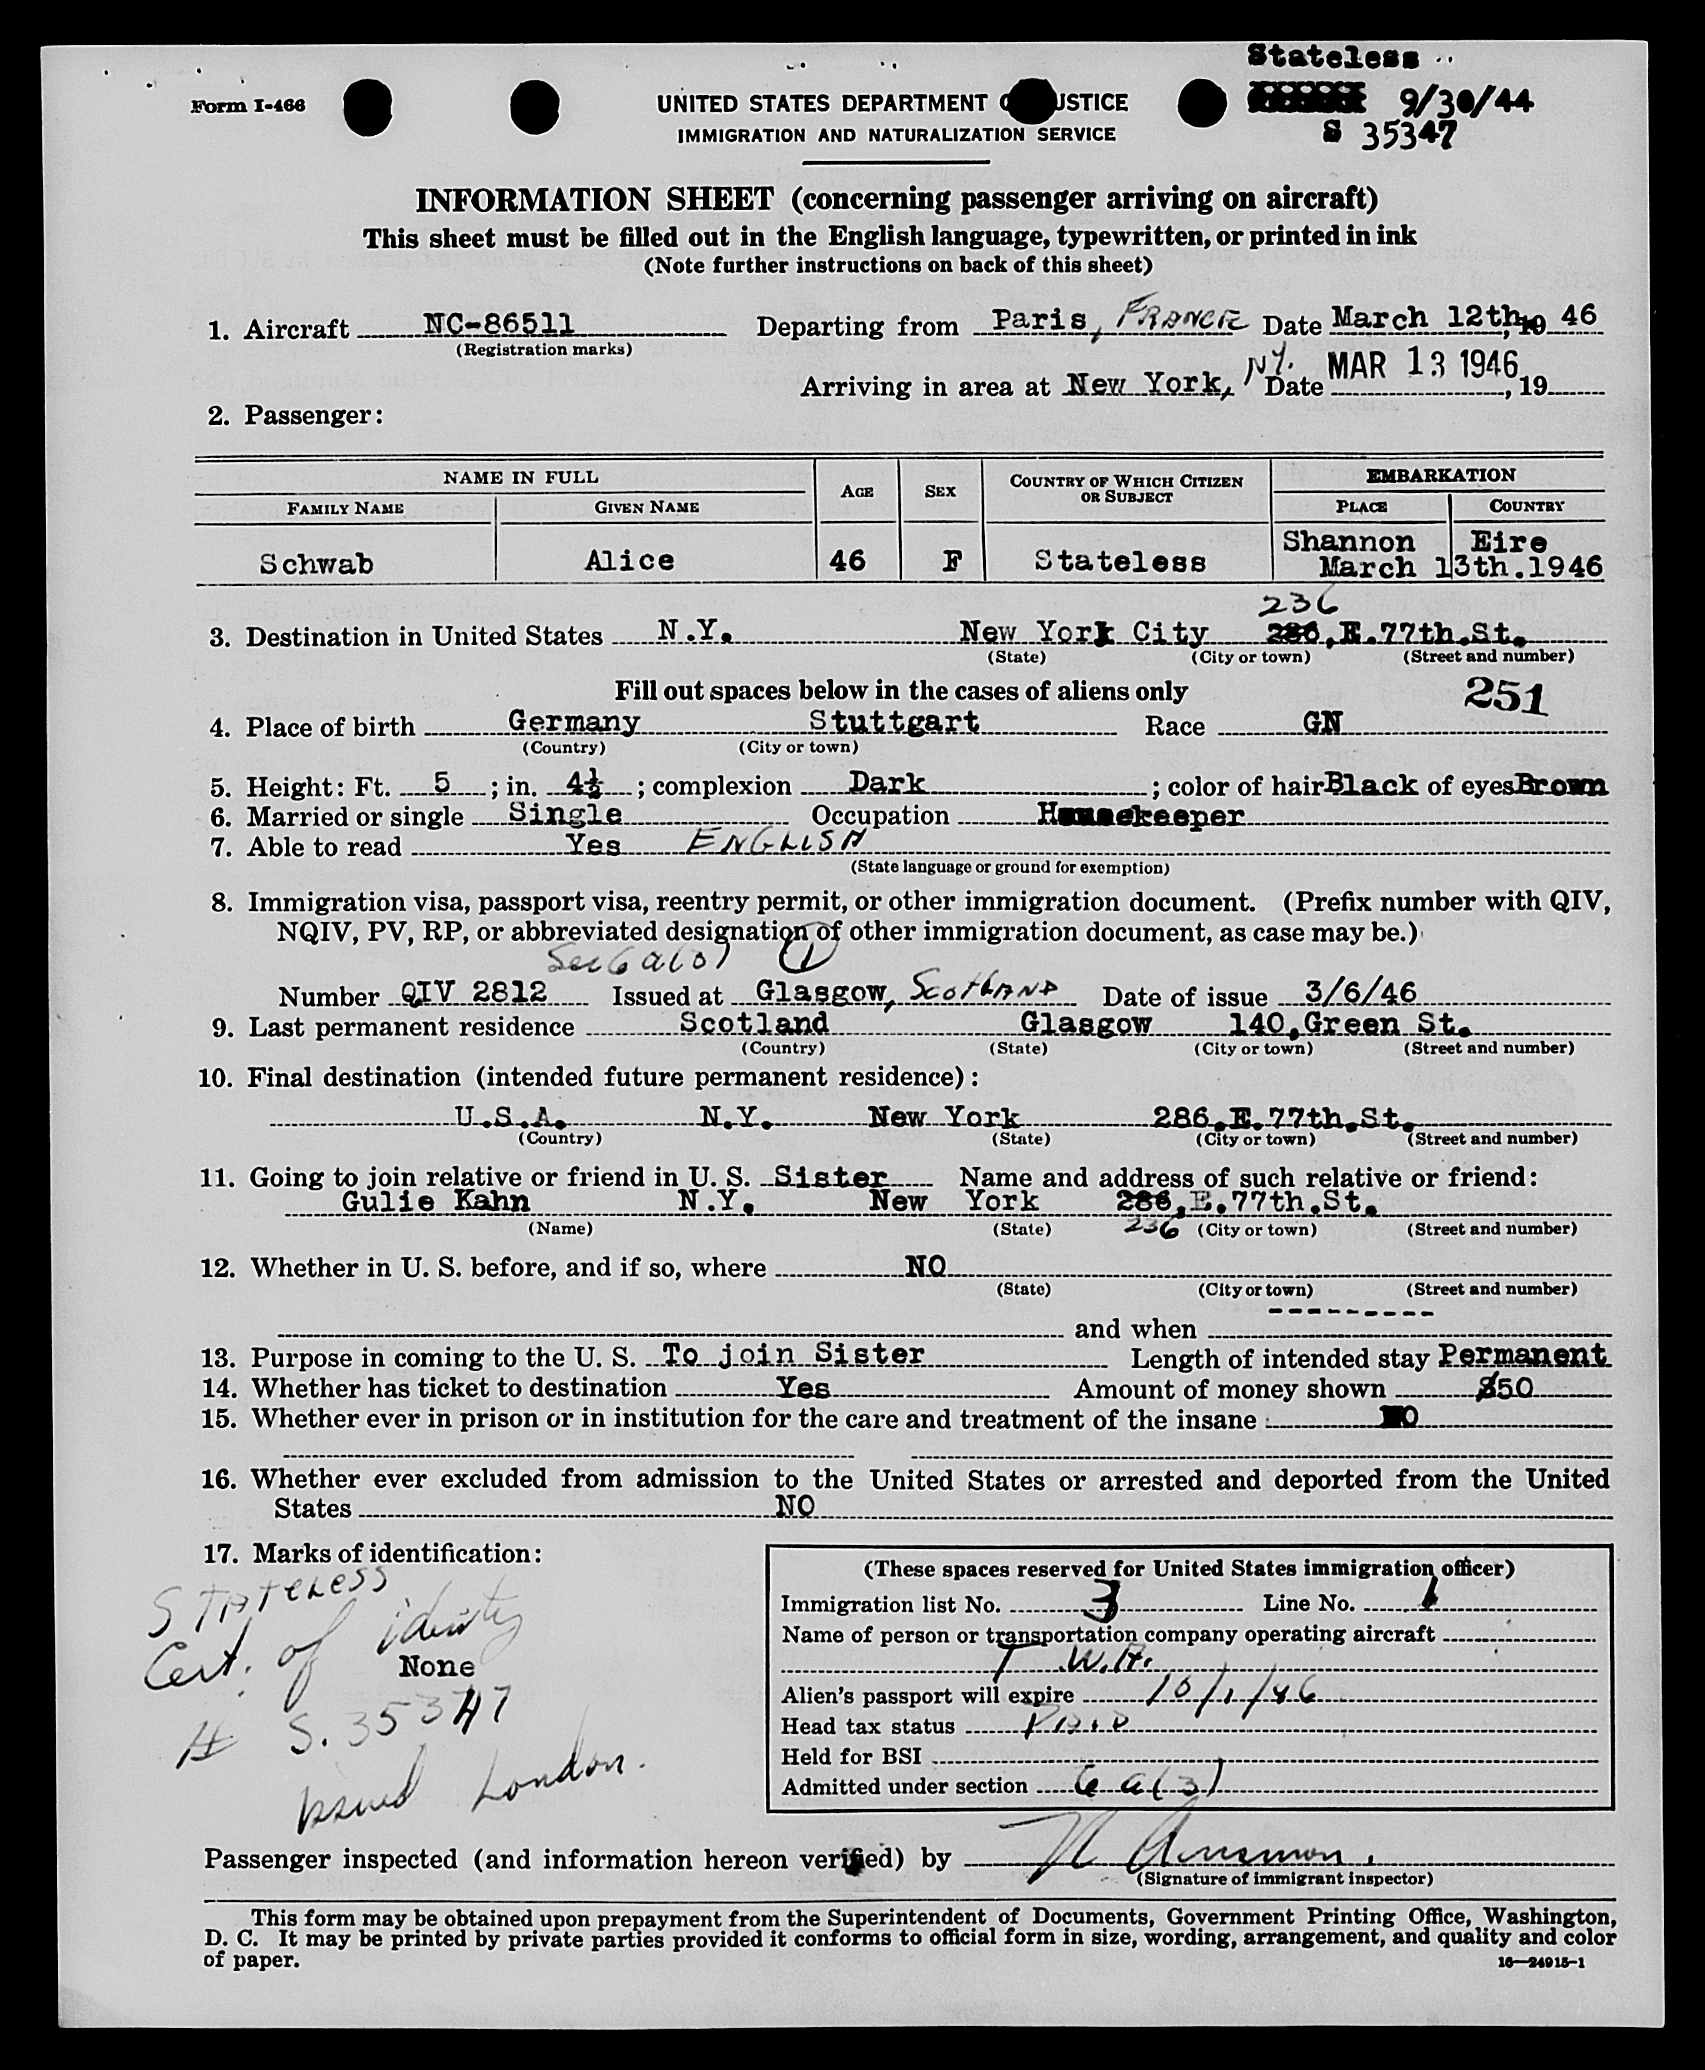 Stateless
Form I-466
UNITED STATES DEPARTMENT OF JUSTICE
9/30/44
IMMIGRATION AND NATURALIZATION SERVICE
S 35347
INFORMATION SHEET (concerning passenger arriving on aircraft)
This sheet must be filled out in the English language, typewritten, or printed in ink
(Note further instructions on back of this sheet)
1. Aircraft NC-86511 Departing from Paris, FRANCE Date March 12th, 19 46
(Registration marks)
Arriving in area at New York, NY. Date MAR 13 1946, 19
2. Passenger:
NAME IN FULL AGE SEX COUNTRY OF WHICH CITIZEN OR SUBJECT EMBARKATION
FAMILY NAME GIVEN NAME PLACE COUNTRY
Schwab Alice 46 F Stateless Shannon Eire
March 13th.1946
236
3. Destination in United States N.Y. New York City 286,E.77th.St.
(State) (City or town) (Street and number)
Fill out spaces below in the cases of aliens only 251
4. Place of birth Germany Stuttgart Race GN
(Country) (City or town)
5. Height: Ft. 5 ; in. 4½ ; complexion Dark ; color of hair Black of eyes Brown
6. Married or single Single Occupation Housekeeper
7. Able to read Yes ENGLISH
(State language or ground for exemption)
8. Immigration visa, passport visa, reentry permit, or other immigration document. (Prefix number with QIV,
NQIV, PV, RP, or abbreviated designation of other immigration document, as case may be.)
Sec 6 a(3) 1
Number QIV 2812 Issued at Glasgow, Scotland Date of issue 3/6/46
9. Last permanent residence Scotland Glasgow 140,Green St.
(Country) (State) (City or town) (Street and number)
10. Final destination (intended future permanent residence):
U.S.A. N.Y. New York 286,E.77th.St.
(Country) (State) (City or town) (Street and number)
11. Going to join relative or friend in U. S. Sister Name and address of such relative or friend:
Gulie Kahn N.Y. New York 286,E.77th.St.
(Name) (State) 236 (City or town) (Street and number)
12. Whether in U. S. before, and if so, where NO
(State) (City or town) (Street and number)
---------
and when
13. Purpose in coming to the U. S. To join Sister Length of intended stay Permanent
14. Whether has ticket to destination Yes Amount of money shown $50
15. Whether ever in prison or in institution for the care and treatment of the insane NO
16. Whether ever excluded from admission to the United States or arrested and deported from the United
States NO
17. Marks of identification:
STATELESS
Cert. of identity
None
# S.35347
Issued London.
(These spaces reserved for United States immigration officer)
Immigration list No. 3 Line No. 1
Name of person or transportation company operating aircraft
T.W.A.
Alien's passport will expire 10/1/46
Head tax status PAID
Held for BSI
Admitted under section 6 a(3)
Passenger inspected (and information hereon verified) by
(Signature of immigrant inspector)
This form may be obtained upon prepayment from the Superintendent of Documents, Government Printing Office, Washington,
D. C. It may be printed by private parties provided it conforms to official form in size, wording, arrangement, and quality and color
of paper. 16—24915-1